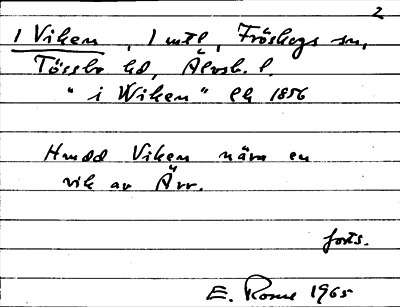 2
I Viken, 1 mtl, Fröskogs sn,
Tössbo hd, Älvsb. l.
"i Wiken" lk 1856
Hmdd Viken nära en
vik av Ärr.
forts.
E. Rosné 1965